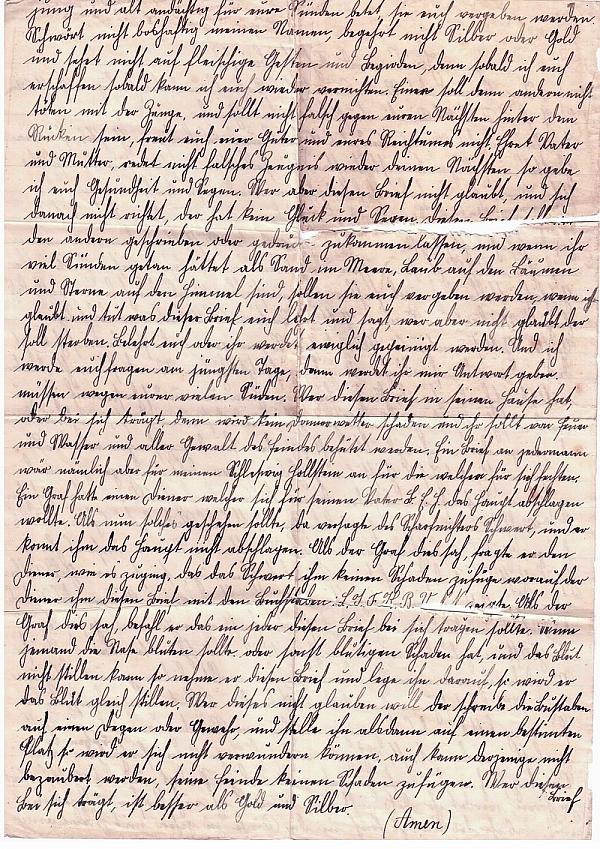 jung und alt andächtig für eure Sünden betet, sie euch vergeben werden.
Schwört nicht boshaftig meinen Namen, begehrt nicht Silber oder Gold
und seht nicht auf fleischige Gesten und Begirden, denn sobald ich euch
erschaffen sobald kann ich euch wieder vernichten. Einer soll den andern nicht
töten mit der Zunge, und sollt nicht falsch gegen euren Nächsten hinter dem
Rücken sein, freut euch eurer Güter und eures Reichtumes nicht. Ehret Vater
und Mutter, redet nicht falsches Zeugnis wieder deinen Nächsten so gebe
ich euch Gesundheit und Segen. Wer aber diesen Brief nicht glaubt, und sich
danach nicht richtet, der hat kein Glück und Segen. Diesen Brief soll
den andern geschrieben oder zukommen lassen, und wenn ihr
viel Sünden getan hättet als Sand im Meere, Laub auf den Bäumen
und Sterne auf den Himmel sind, sollen sie euch vergeben werden, wenn ihr
glaubt und tut was dieser Brief euch lehrt und sagt, wer aber nicht glaubt der
soll sterben. Bekehrt euch oder ihr werdet ewiglich gepeinigt werden. Und ich
werde euch fragen am jüngsten Tage, dann werdet ihr mir Antwort geben
müssen wegen eurer vielen Süden. Wer diesen Brief in seinen Hause hat,
oder bei sich trägt, dem wird kein Donnerwetter schaden und ihr sollt von Feuer
und Wasser und aller Gewalt des Feindes behütet werden. Ein Brief an jedermann
war nämlich aber für meinen Schleswig Hollstein an für die welchen für sich fechten.
Ein Graf hatte einen Diener welcher sich für seinen Vater B. E. H. das Haupt abschlagen
wollte. Als nun solches geschehen sollte, da versagte des Scharfristers Schwert, und er
konnt ihm das Haupt nicht abschlagen. Als der Graf dies sah, fragte er den
Diener, wie es zuging, das das Schwert ihm keinen Schaden zufüge worauf der
Diener ihm diesen Brief mit den Buchstaben L. I. F. K. R. zeigte. Als der
Graf dies sah, befahl er das ein jeder diesen Brief bei sich tragen sollte. Wenn
jemand die Nase bluten sollte, oder sonst blutigen Schaden hat, und das Blut
nicht stillen kann so nehme er diesen Brief und lege ihn darauf, so wird er
das Blut gleich stillen. Wer dieses nicht glauben will der schreibe die Bustaben
auf einen Degen oder Gewehr, und stelle ihn alsdann auf einen bestimten
Platz so wird er sich nicht verwundern können, auch kann derjenige nicht
bezaubert werden, seine Feinde keinen Schaden zufügen. Wer diesen Brief
bei sich trägt, ist besser als Gold und Silber.
(Amen)